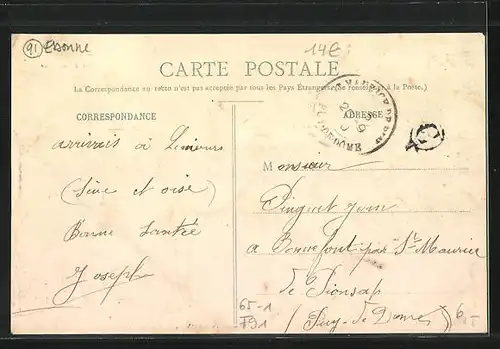 91 Essonne
14€
CARTE POSTALE
La Correspondance au recto n'est pas acceptée par tous les Pays Étrangers (Se renseigner à la Poste.)
CORRESPONDANCE
ADRESSE
PUY-DE-DOME
arrivais à Limours
(Seine et oise)
Bonne Santée
Joseph
Monsieur
Pinguet
a Bonnefont par St Maurice
de Pionsat
(Puy-de-Dome)
65-1
791